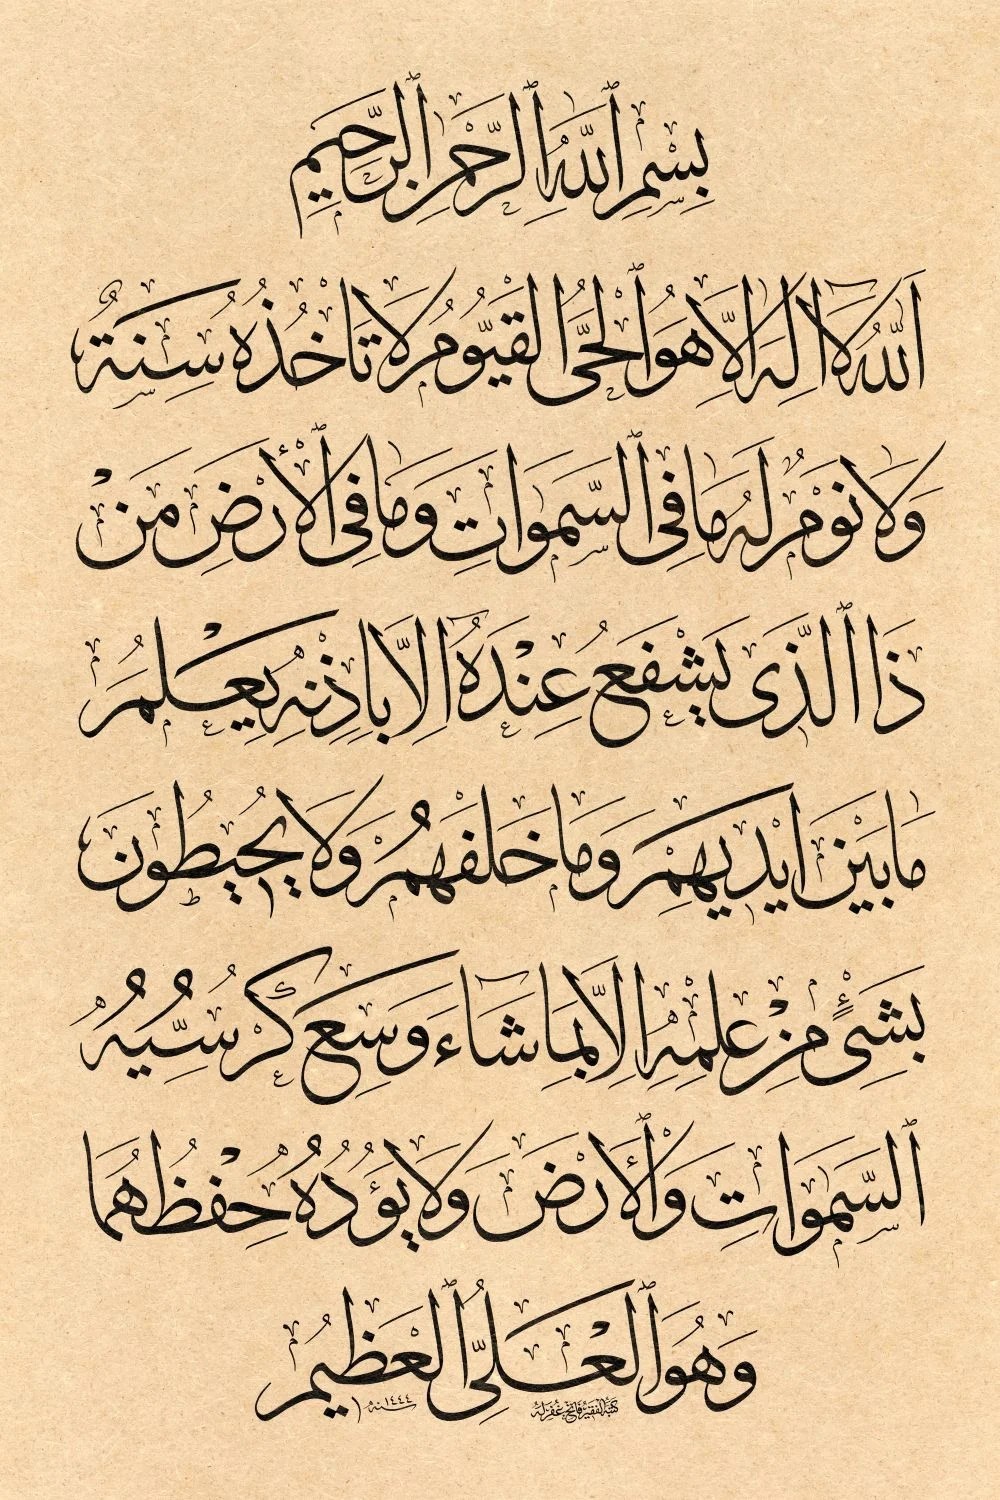 بِسْمِ ٱللَّهِ ٱلرَّحْمٰنِ ٱلرَّحِيمِ
اَللّٰهُ لَآ اِلٰهَ اِلَّا هُوَ ٱلْحَىُّ ٱلْقَيُّومُ لَا تَأْخُذُهُ سِنَةٌ
وَلَا نَوْمٌ لَهُ مَا فِى ٱلسَّمٰوَاتِ وَمَا فِى ٱلْأَرْضِ مَنْ
ذَا ٱلَّذِى يَشْفَعُ عِنْدَهُٓ اِلَّا بِاِذْنِهِ يَعْلَمُ
مَا بَيْنَ اَيْدِيهِمْ وَمَا خَلْفَهُمْ وَلَا يُحِيطُونَ
بِشَىْءٍ مِنْ عِلْمِهِ اِلَّا بِمَا شَآءَ وَسِعَ كُرْسِيُّهُ
ٱلسَّمٰوَاتِ وَٱلْأَرْضَ وَلَا يَؤُدُهُ حِفْظُهُمَا
وَهُوَ ٱلْعَلِىُّ ٱلْعَظِيمُ
كتبه الفقير فاتح غفر له سنه ١٤٤٤